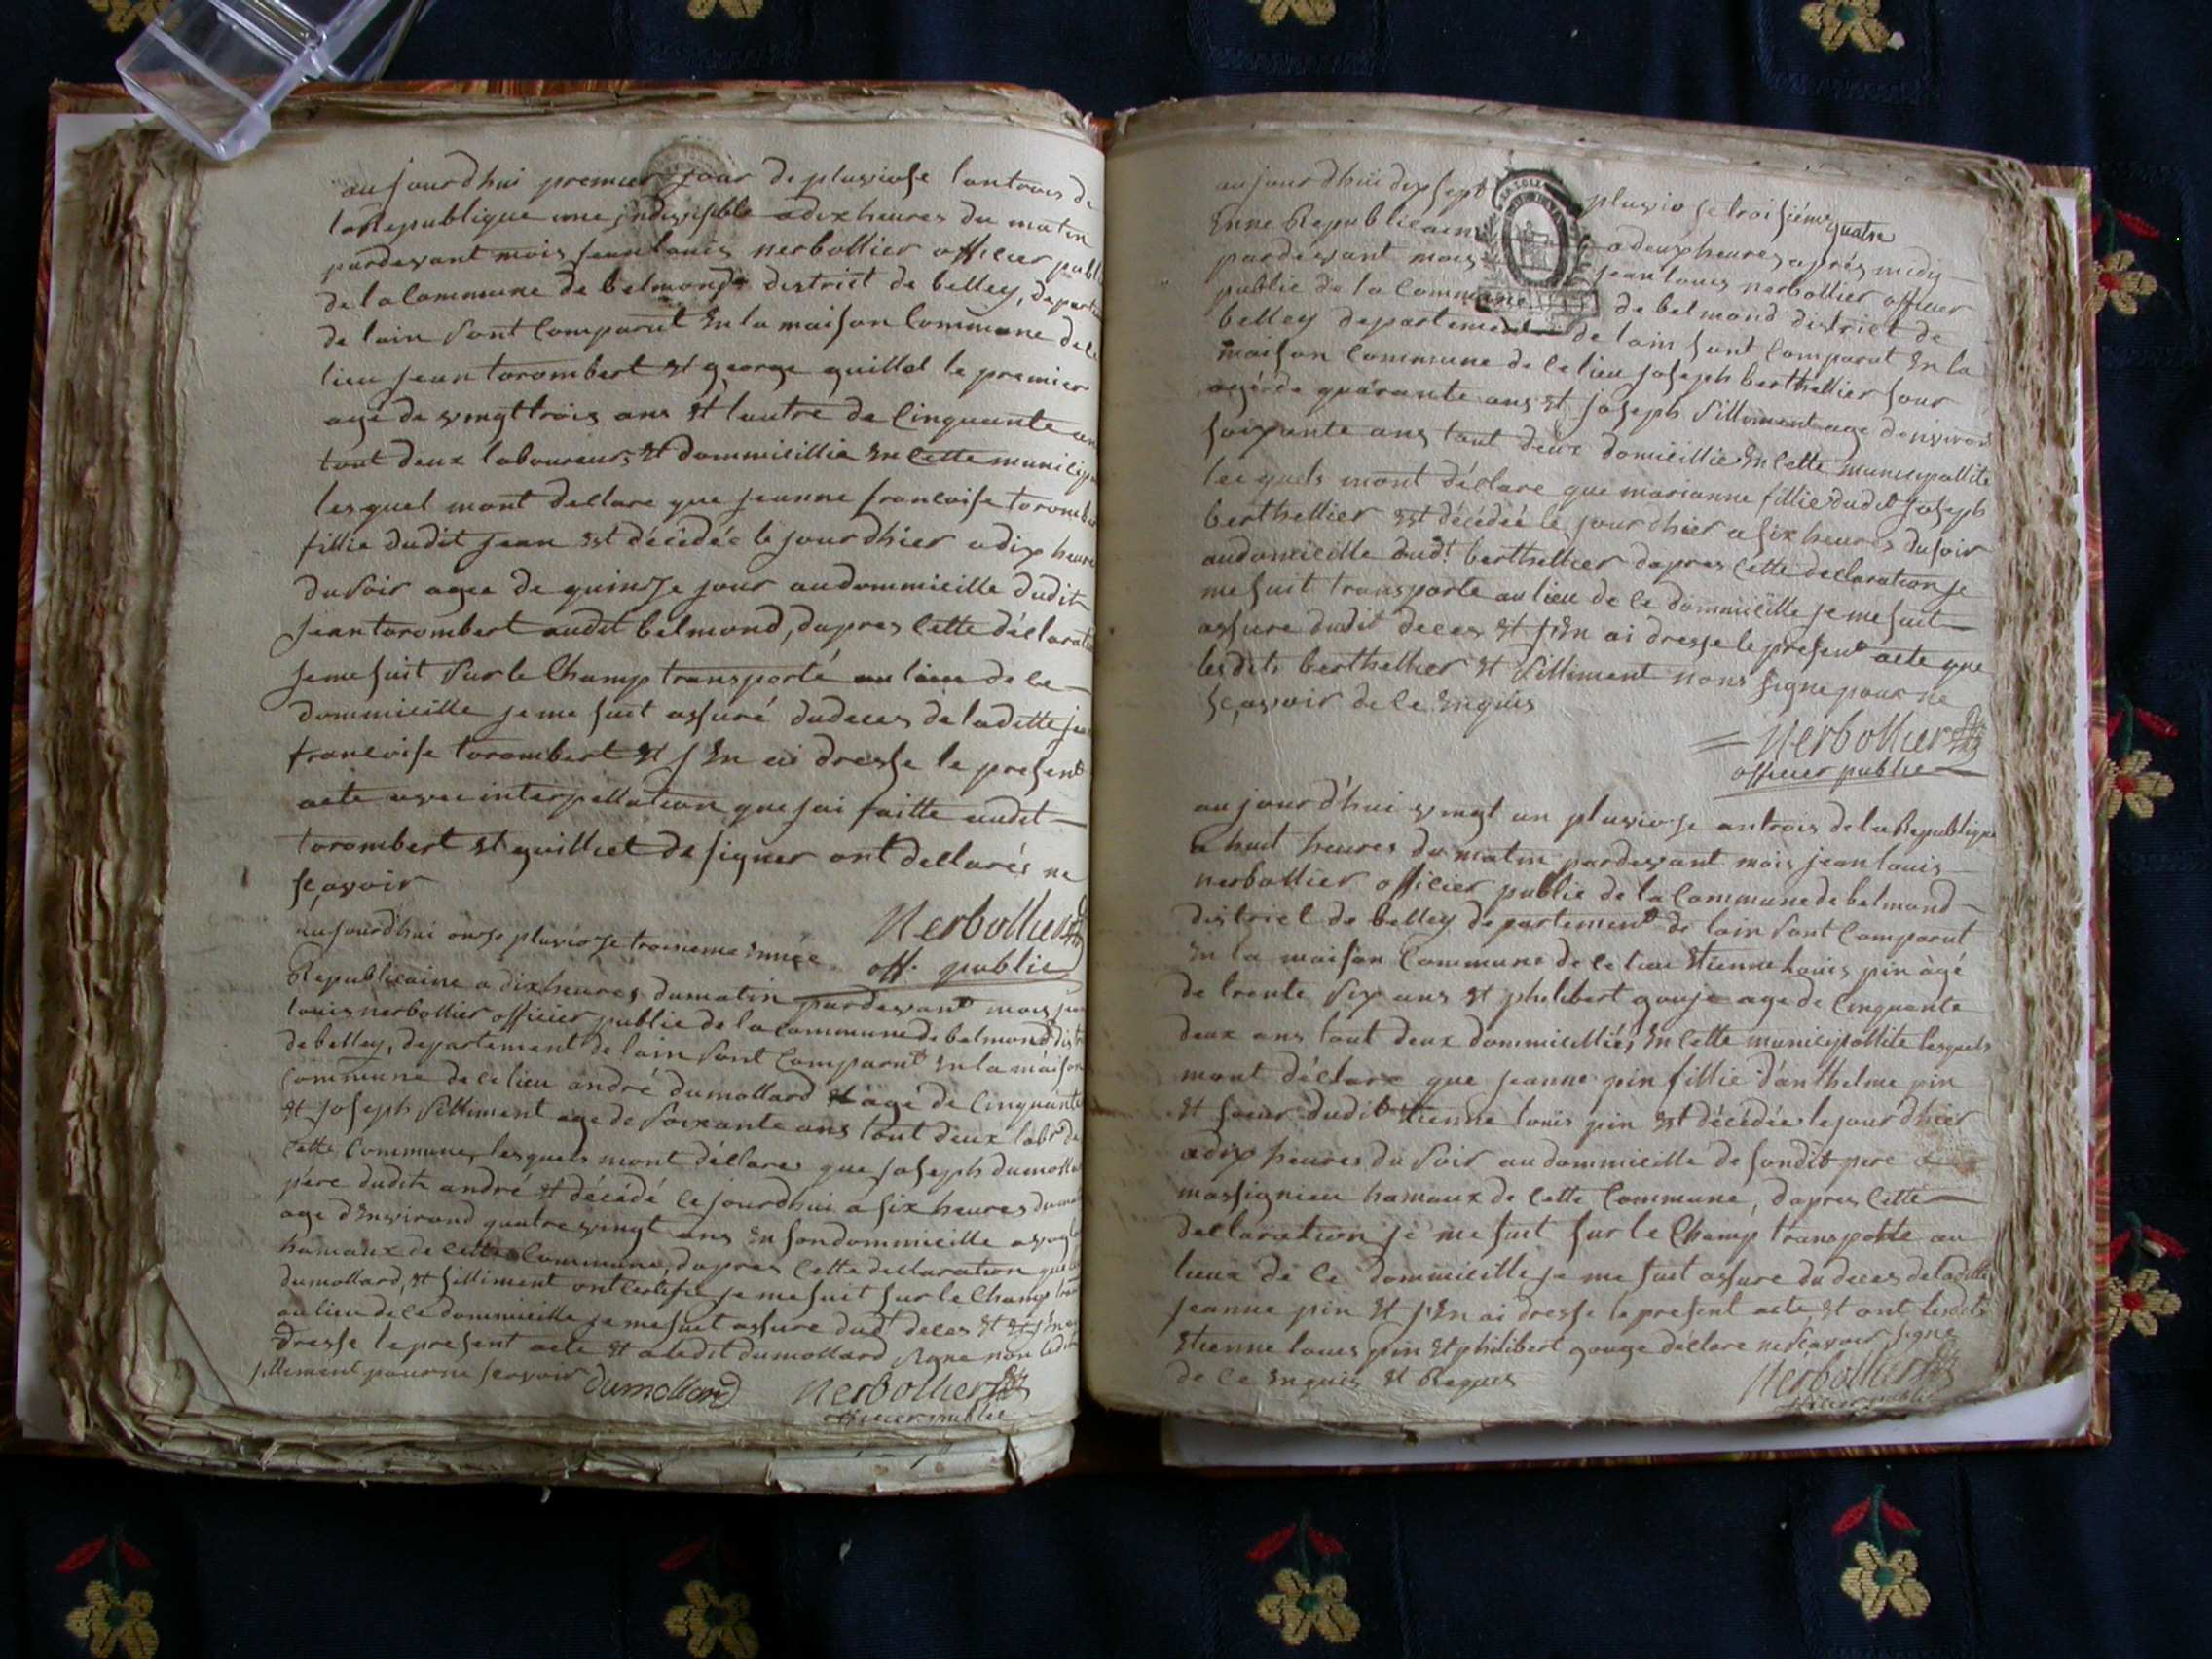 aujourdhui premier jour de pluviose lantrois de
la Republique une indivisible a dix heures du matin
pardevant mois jean louis nerbollier officier publi
de la Commune de belmond district de belley, departe
de lain sont Comparut En la maison Commune de ce
lieu jean torombert Et george guillot le premier
age de vingt trois ans Et lautre de Cinquante an
tout deux laboureurs Et dommicillie En Cette municip
lesquel mont dellare que jeanne francoise torombe
fillie dudit jean Est décédée le jour dhier a dix heure
du soir agee de quinze jour au dommicille dudit
jean torombert audit belmond, dapres Cette déclarati
je me suit sur le Champ transporté au lieu de ce
dommicille je me suit assuré du deces de ladette jea
francoise torombert Et j'En ai dresse le present
acte avec interpellation que jai faitte audit
torombert et guilliet de signer ont dellarés ne
sçavoir
Nerbollier
off. public
aujourd'hui onze pluvioze troisieme année
Republicaine a dix heures du matin pardevant mois jea
louis nerbollier officier public de la commune de belmond dist
de belley, departement de lain sont Comparut En la maison
Commune de ce lieu andré dumollard Et âgé de Cinquante
Et joseph silliment age de soixante ans tout deux labr de
Cette Commune, lesquels mont déllares que joseph dumolla
père dudit andré Et décédé ce jourdhui a six heures du mat
age d'Environd quatre vingt ans En son dommicille
hamaux de cette Commune, dapres Cette dellaration que
dumollard, Et silliment ont Certifie je me suit sur le Champ tran
au lieu de ce dommicille je me suit assure dudt deces Et j'En ai
dresse le present acte Et a ledit dumollard signe non ledit
silliment pour ne scavoir
dumollard Nerbollier
officier public
aujourdhui dix sept pluviose troisiéme quatre
Enne Republicaine a deux heures aprés midy
pardevant mois jean louis nerbollier officier
public de la Commune de belmond district de
belley departement de lain sont Comparut En la
maison Commune de ce lieu joseph berthellier
agé de quarante ans Et joseph silliment age denviron
soixante ans tout deux domicillié En Cette municipallite
lesquels mont déclare que marianne fillie dudit joseph
berthellier Est décédée le jour dhier a six heures du soir
au domicille dudt berthellier dapres Cette declaration je
me suit transporte au lieu de ce dommicille je me suit
assure dudit deces Et j'En ai dresse le present acte que
lesdits berthellier Et silliment nons signe pour ne
sçavoir de ce Enquis
Nerbollier
officier public
aujourd'hui vingt un pluvioze antrois de la Republique
a huit heures du matin pardevant mois jean louis
nerbollier officier public de la Commune de belmond
district de belley departement de lain sont Comparut
En la maison Commune de ce lieu Etienne louis pin âgé
de trente six ans Et philibert gouje age de Cinquante
deux ans tout deux dommicilliés En Cette municipallite lesquels
mont déclare que jeanne pin fillie d'anthelme pin
Et soeur dudit Etienne louis pin Est décédée le jour dhier
a dix heures du soir au dommicille de sondit pere a
massignieu hamaux de Cette Commune, dapres Cette
declaration je me suit sur le Champ transporte au
lieux de ce dommicille je me suit assure du deces de ladite
jeanne pin Et j'En ai dresse le present acte Et ont lesdits
Etienne louis pin Et philibert gouge déclare ne scavoir signe
de ce Enquis Et Requis
Nerbollier
officier public